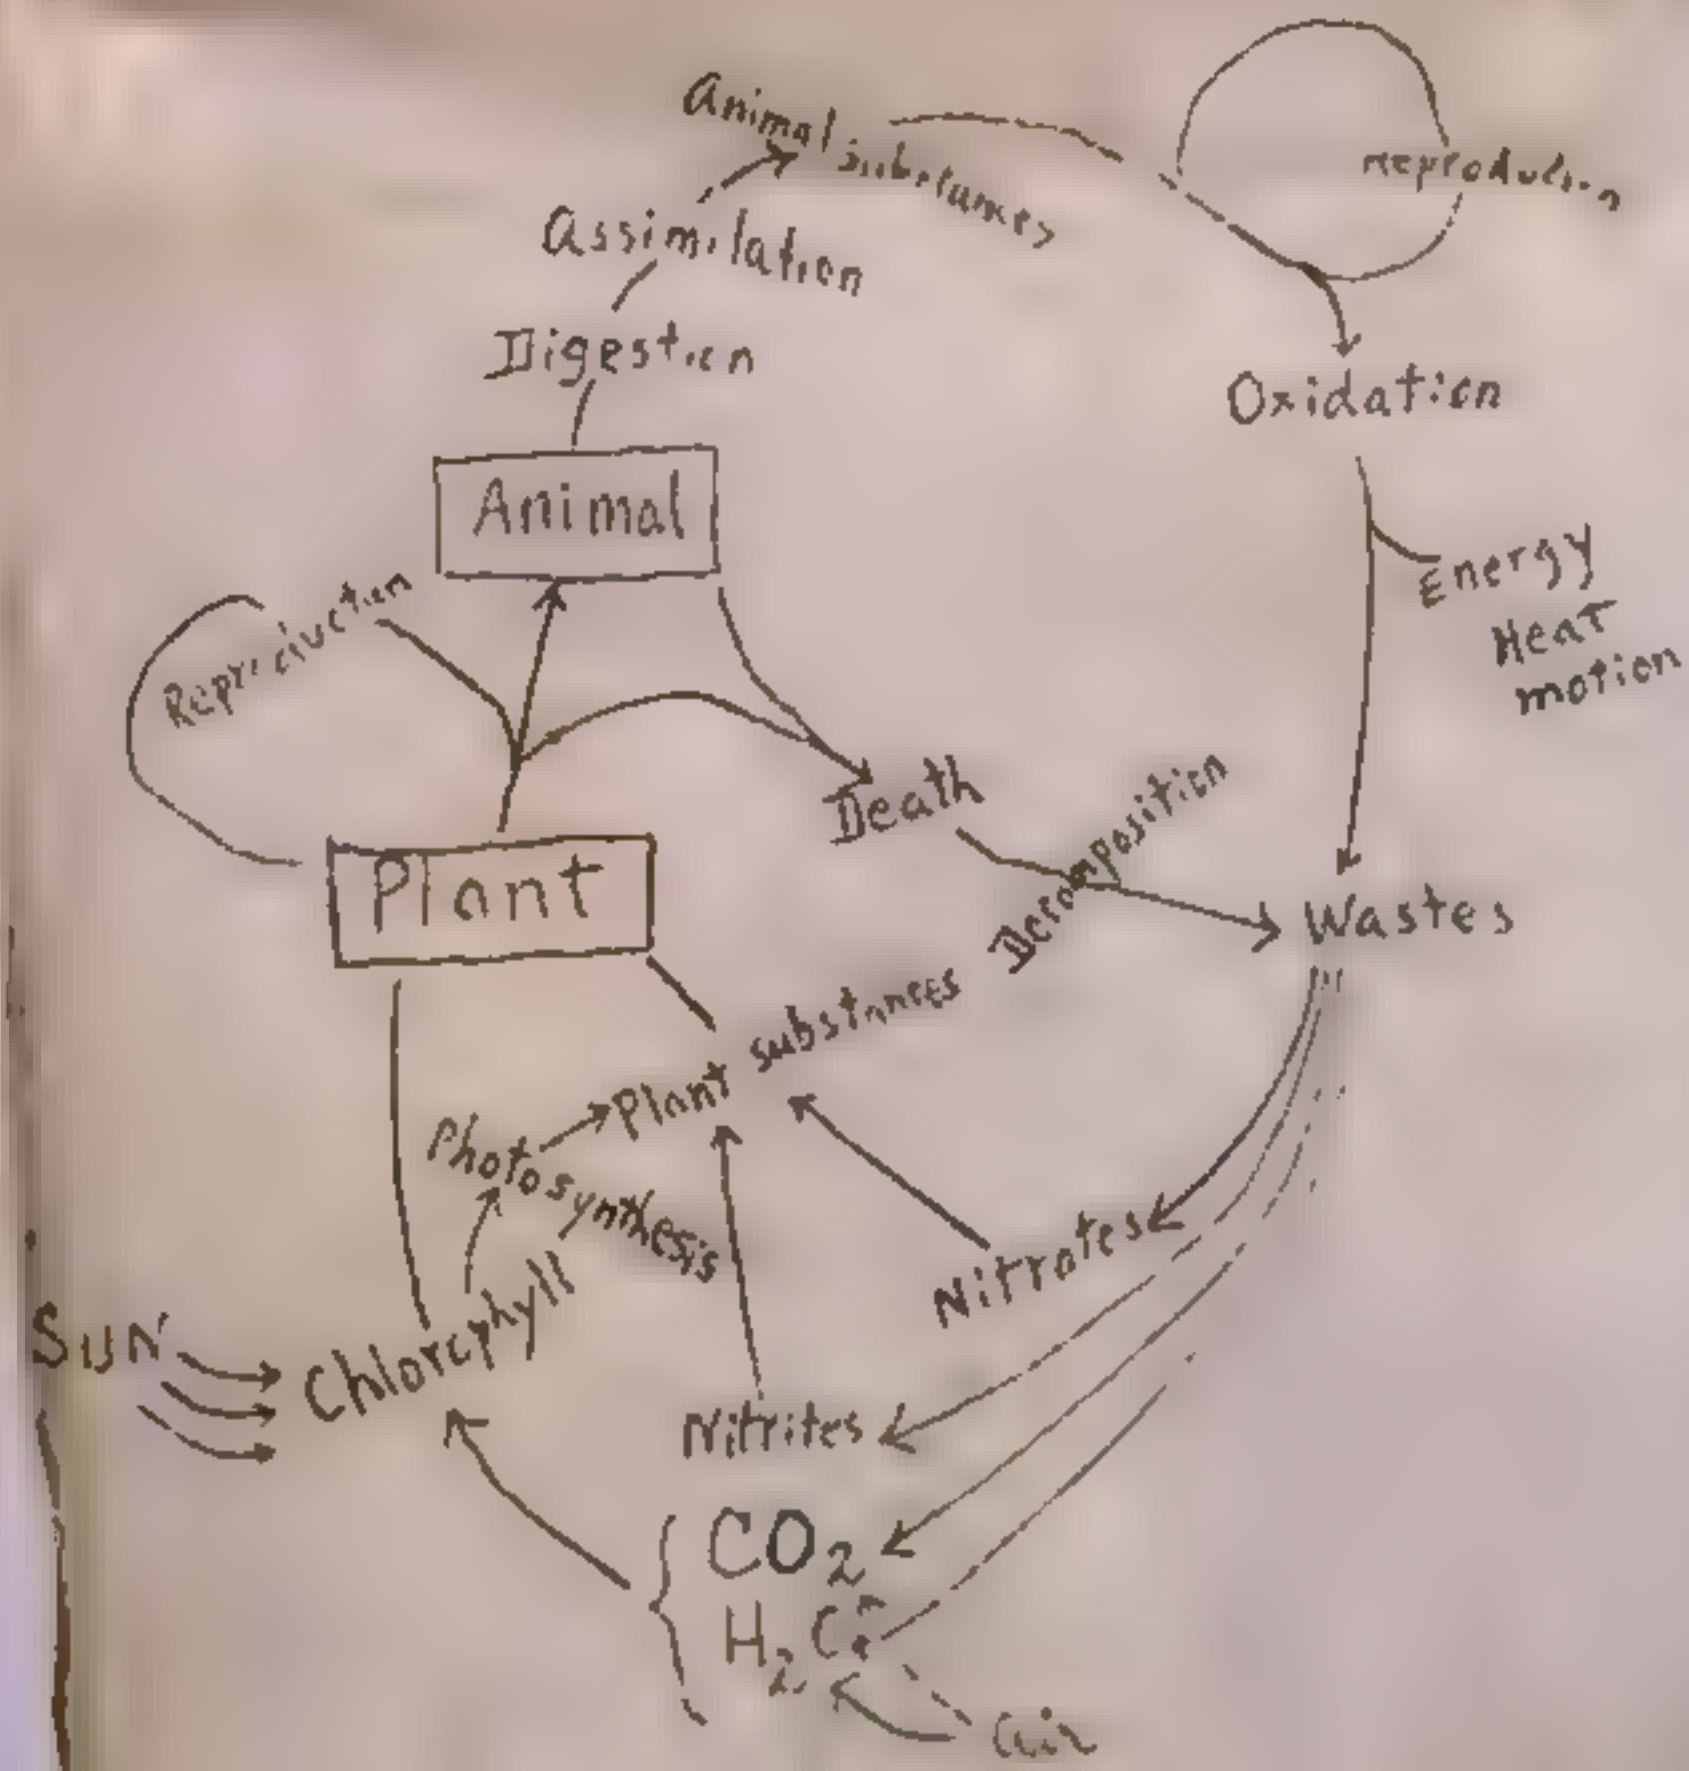 Animal
substances
reproduction
Assimilation
Digestion
Oxidation
Animal
Energy
Heat
motion
Reproduction
Death
Decomposition
Plant
Wastes
substances
Plant
Photosynthesis
Nitrates
Sun
Chlorophyll
Nitrites
CO2
air